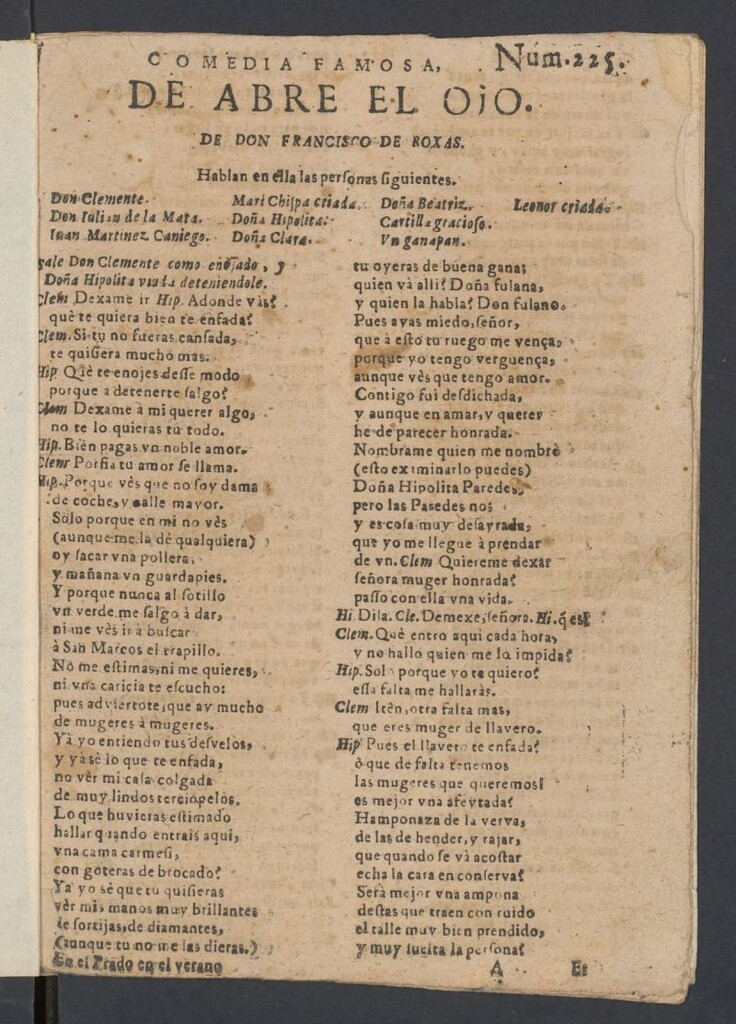 COMEDIA FAMOSA, Num. 225.
DE ABRE EL OJO.
DE DON FRANCISCO DE ROXAS.
Hablan en ella las personas siguientes.
Don Clemente. Mari Chispa criada. Doña Beatriz. Leonor criada.
Don Iulian de la Mata. Doña Hipolita. Cartilla gracioso.
Iuan Martinez Caniego. Doña Clara. Vn ganapan.
Sale Don Clemente como enojado, y
Doña Hipolita viuda deteniendole.
Clem Dexame ir Hip. Adonde vàs?
què te quiera bien te enfada?
Clem. Si tu no fueras cansada,
te quisiera mucho mas.
Hip Què te enojes desse modo
porque a detenerte salgo?
Clem Dexame à mi querer algo,
no te lo quieras tù todo.
Hip. Bien pagas vn noble amor.
Clem Porfia tu amor se llama.
Hip. Porque vès que no soy dama
de coche, y calle mayor.
Solo porque en mi no vès
(aunque me la dè qualquiera)
oy sacar vna pollera,
y mañana vn guardapies.
Y porque nunca al sotillo
vn verde me salgo à dar,
ni me vès ir à buscar
à San Marcos el trapillo.
No me estimas, ni me quieres,
ni vna caricia te escucho:
pues advierto te, que ay mucho
de mugeres à mugeres.
Yà yo entiendo tus desvelos,
y yà sè lo que te enfada,
no vèr mi casa colgada
de muy lindos terciopelos.
Lo que huvieras estimado
hallar quando entrais aqui,
vna cama carmesi,
con goteras de brocado?
Ya yo sè que tu quisieras
vèr mis manos muy brillantes
de sortijas, de diamantes,
(aunque tu no me las dieras.)
En el Prado en el verano
tu oyeras de buena gana;
quien và alli? Doña fulana,
y quien la habla? Don fulano.
Pues ayas miedo, señor,
que à esto tu ruego me vença,
porque yo tengo verguença,
aunque vès que tengo amor.
Contigo fui desdichada,
y aunque en amar, y querer
he de parecer honrada.
Nombrame quien me nombrò
(esto examinarlo puedes)
Doña Hipolita Paredes,
pero las Paredes no;
y es cosa muy desayrada,
que yo me llegue à prendar
de vn. Clem Quiereme dexar
señora muger honrada?
passo con ella vna vida.
Hi Dila. Cle. Demexe, señora. Hi. q̃ es?
Clem. Què entro aqui cada hora,
y no hallo quien me lo impida?
Hip. Solo porque yo te quiero?
essa falta me hallaràs.
Clem Iten, otra falta mas,
que eres muger de llavero.
Hip Pues el llavero te enfada?
ò que de falta tenemos
las mugeres que queremos!
es mejor vna afeytada?
Hamponaza de la yerva,
de las de hender, y rajar,
que quando se và acostar
echa la cara en conserva?
Serà mejor vna ampona
destas que traen con ruido
el talle muy bien prendido,
y muy suelta la persona?
A Es